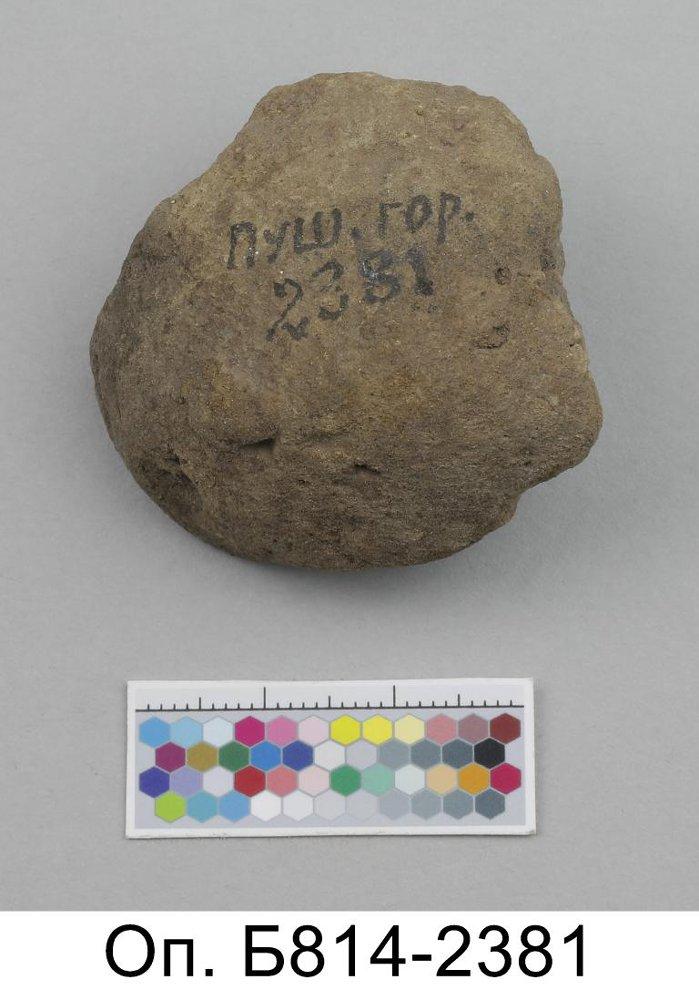 пуш. гор.
2381
Оп. Б814-2381